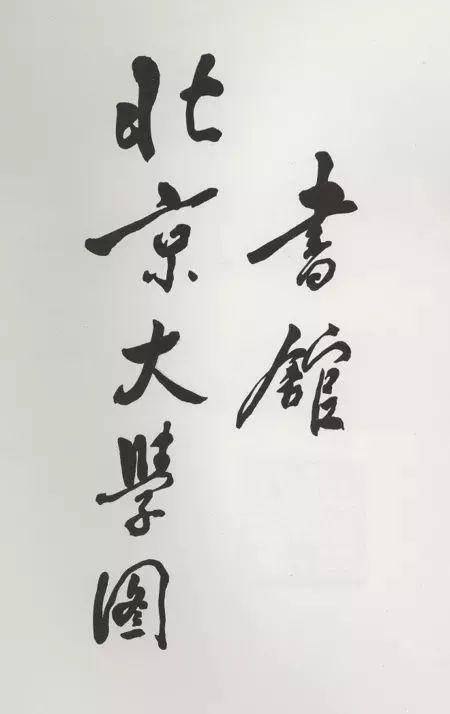 北京大學图
書館